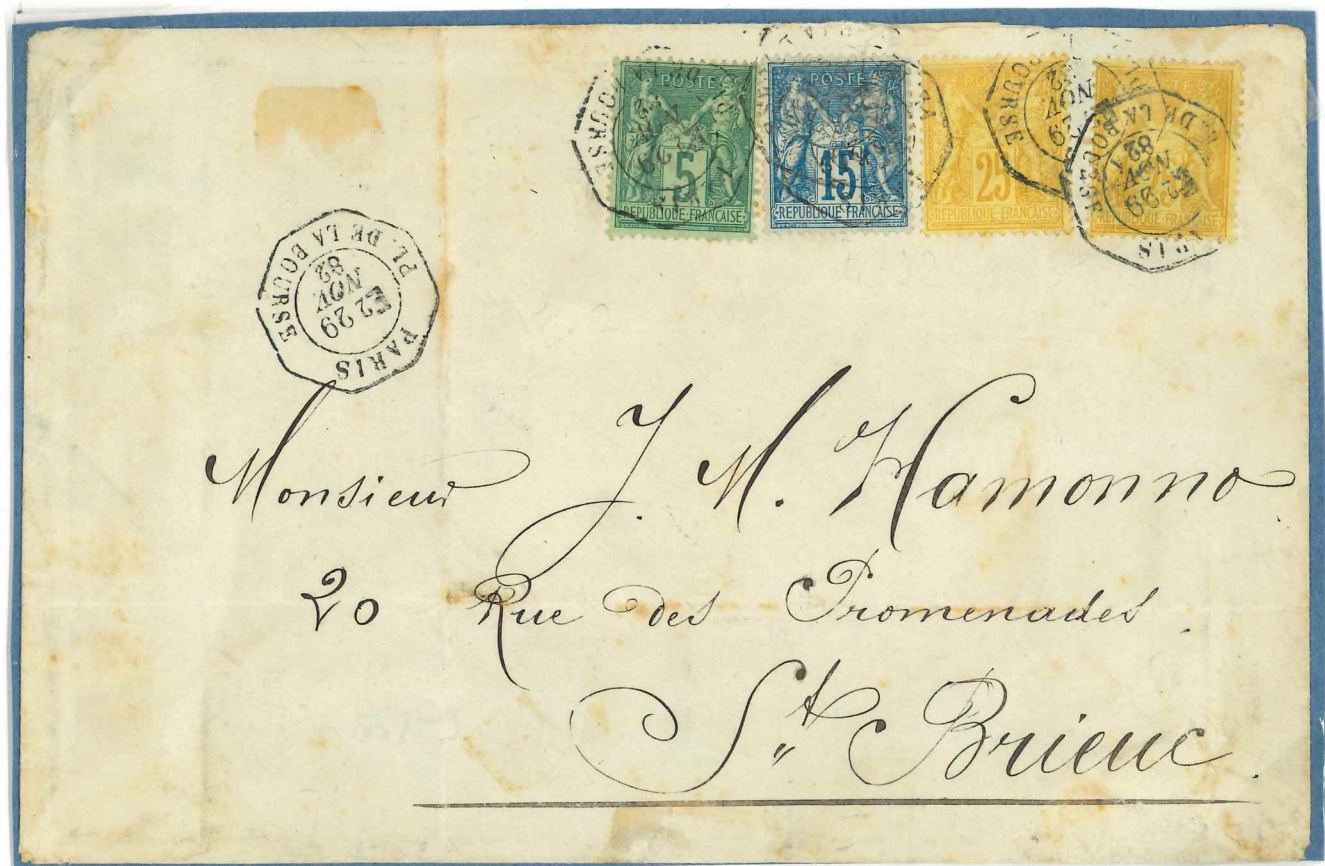 POSTE
5
REPUBLIQUE FRANÇAISE
POSTE
15
REPUBLIQUE FRANÇAISE
25
REPUBLIQUE FRANÇAISE
BOURSE
29
NOV
82
PARIS
PL. DE LA BOURSE
E2 29
NOV
82
PARIS
PL. DE LA BOURSE
E2 29
NOV
82
Monsieur J. M. Hamonno
20 Rue des Promenades.
St Brieuc.